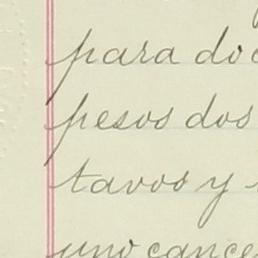 para do
pesos dos
tavos y
uno cance